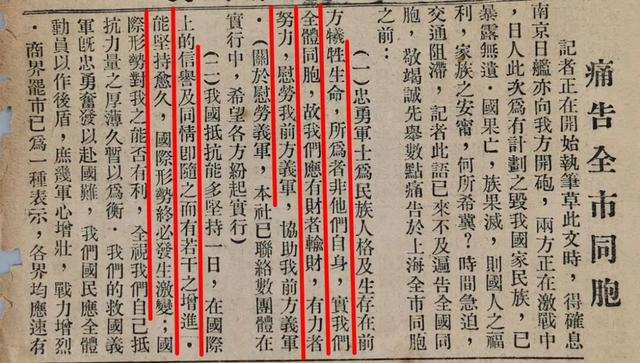 痛告全市同胞
記者正在開始執筆草此文時，得確息
南京日艦亦向我方開砲，兩方正在激戰中
，日人此次爲有計劃之毀我國家民族，已
暴露無遺．國果亡，族果滅，則國人之福
利，家族之安甯，何所希冀？時間急迫，
交通阻滯，記者此語已來不及遍告全國同
胞，敬竭誠先舉數點痛告於上海全市同胞
之前：
（一）忠勇軍士爲民族人格及生存在前
方犧牲生命，所爲者非他們自身，實我們
全體同胞，故我們應有財者輸財，有力者
努力，慰勞我前方義軍，協助我前方義軍
．（關於慰勞義軍，本社已聯絡數團體在
實行中，希望各方紛起實行）
（二）我國抵抗能多堅持一日，在國際
上的信譽及同情卽隨之而有若干之增進．
能堅持愈久，國際形勢終必發生激變；國
際形勢對我之能否有利，全視我們自己抵
抗力量之厚薄久暫以爲衡．我們的救國義
軍旣忠勇奮發以赴國難，我們國民應全體
動員以作後盾，庶幾軍心增壯，戰力增烈
．商界罷市已爲一種表示，各界均應速有